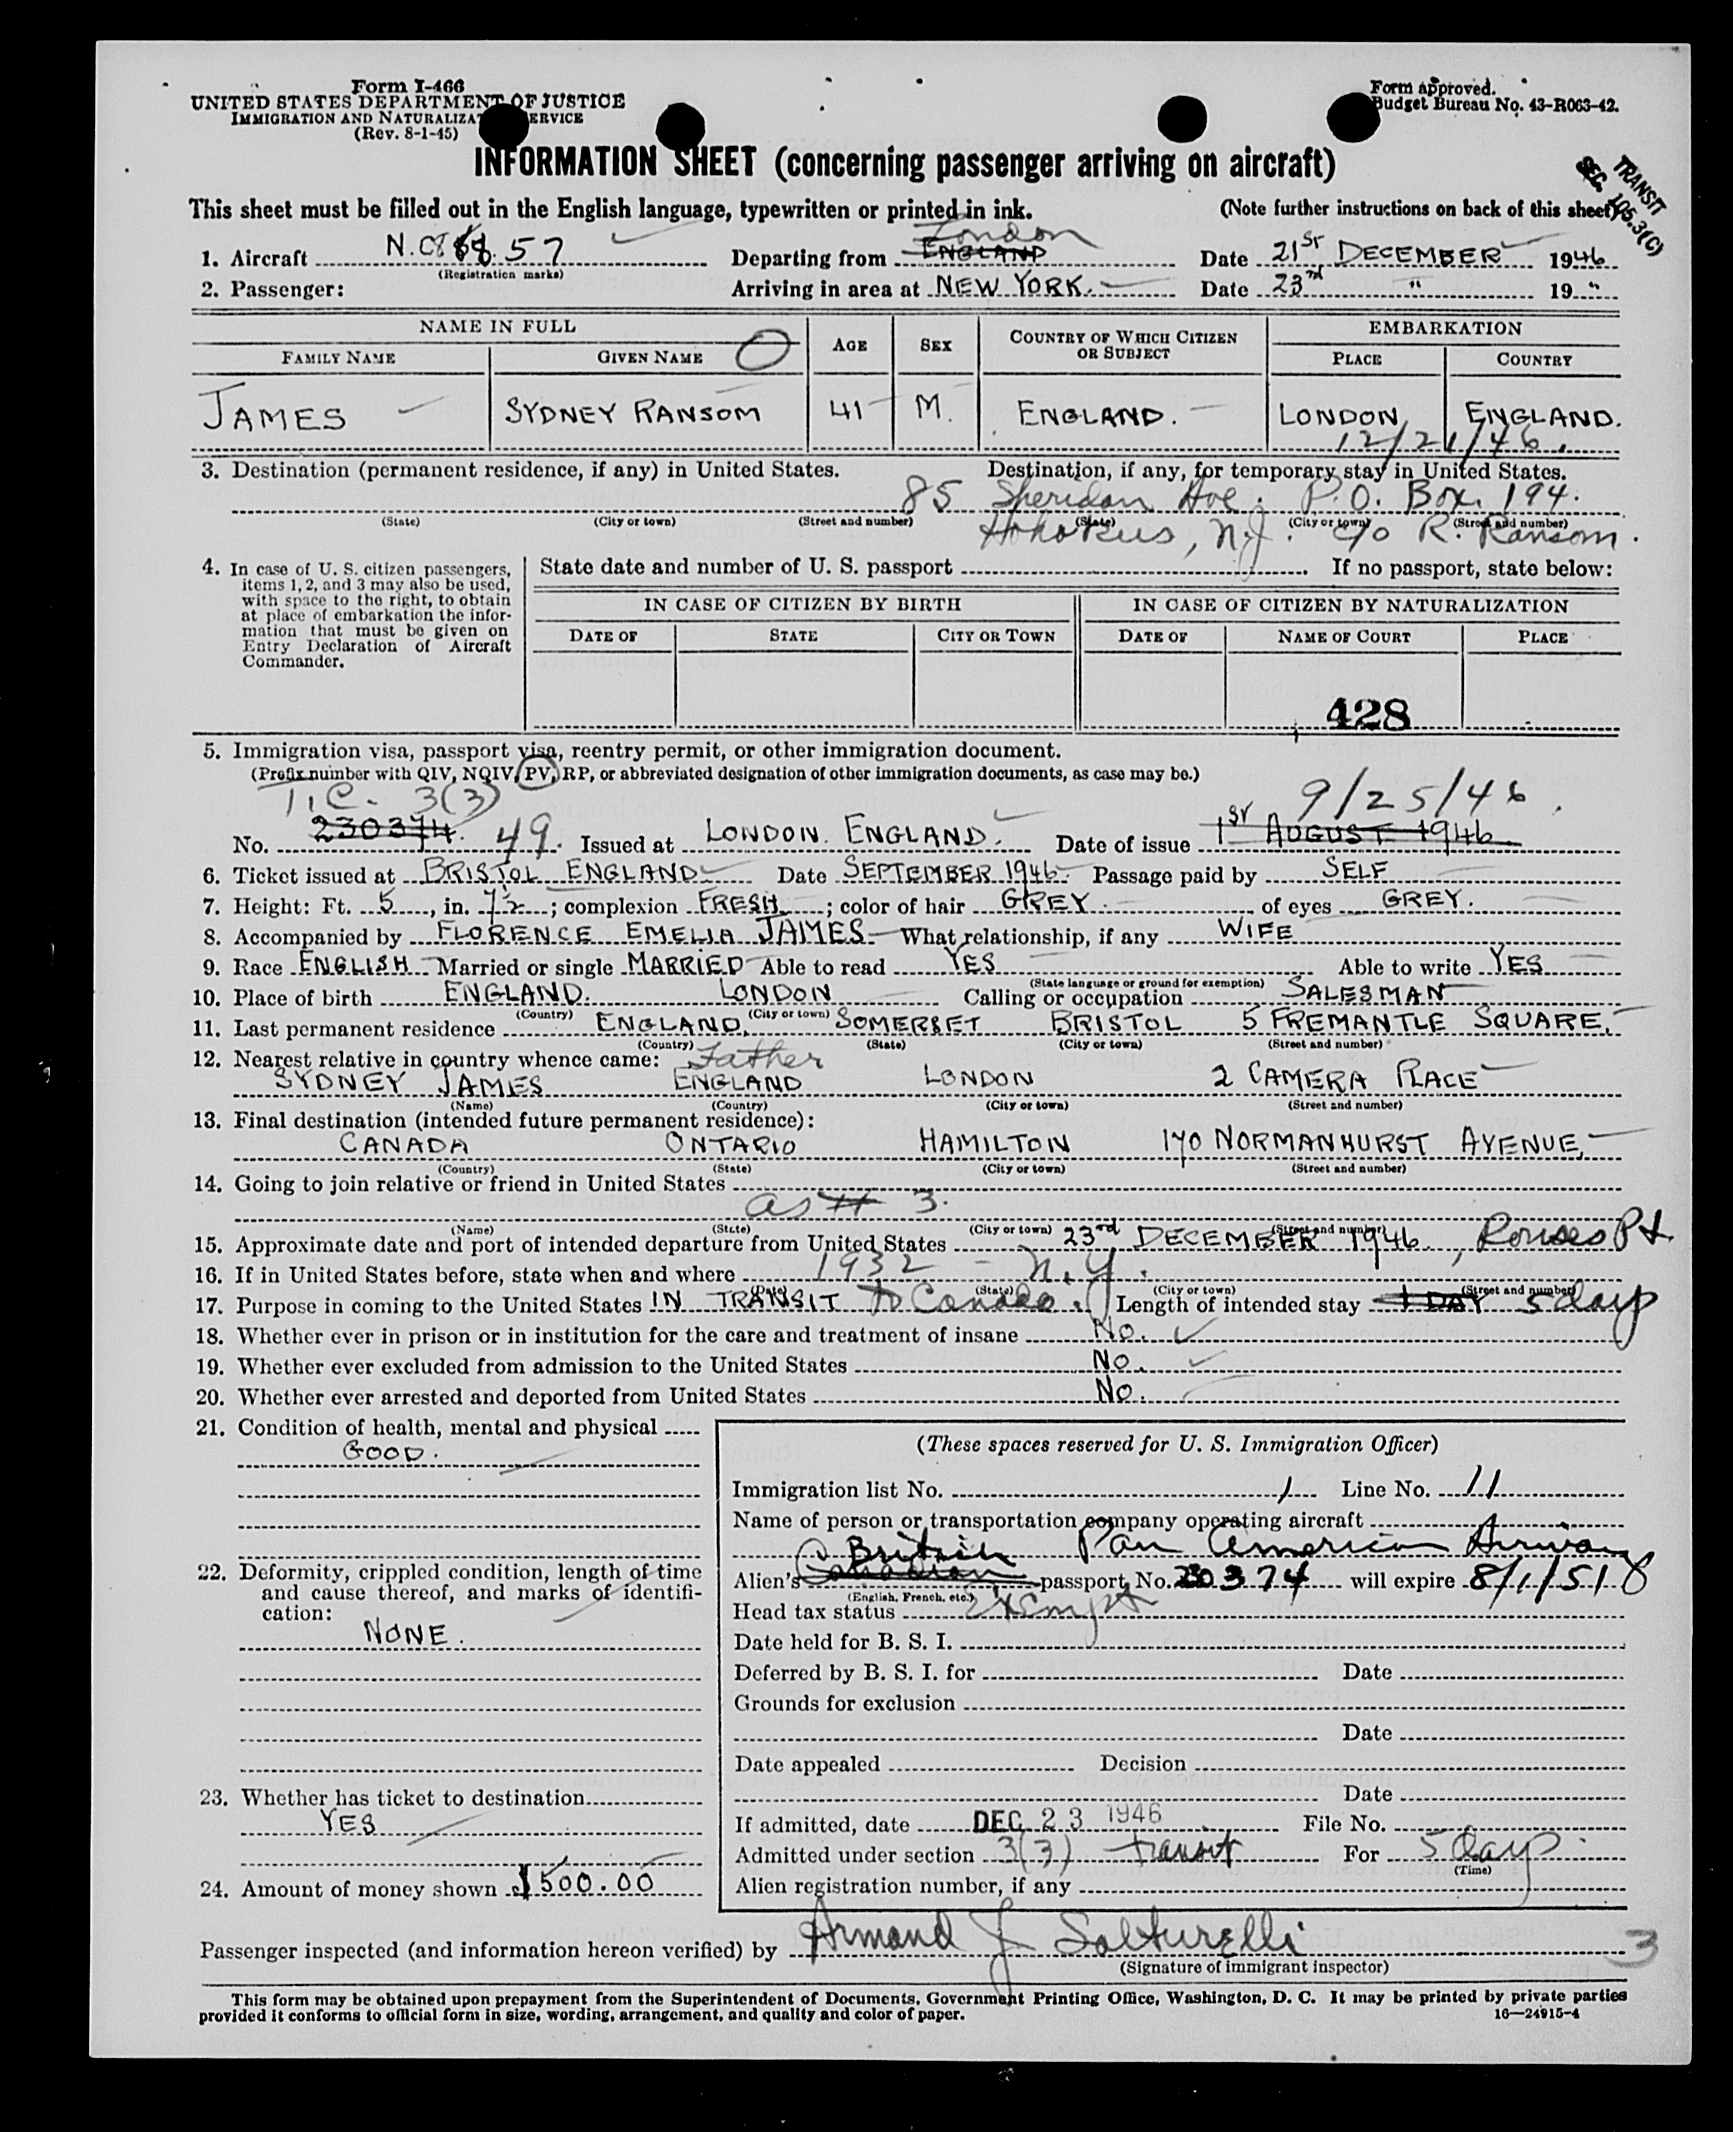 Form I-466
UNITED STATES DEPARTMENT OF JUSTICE
IMMIGRATION AND NATURALIZATION SERVICE
(Rev. 8-1-45)
Form approved.
Budget Bureau No. 43-R063-42.
INFORMATION SHEET (concerning passenger arriving on aircraft)
TRANSIT
SEC. 105.3(C)
This sheet must be filled out in the English language, typewritten or printed in ink. (Note further instructions on back of this sheet)
London
1. Aircraft N.C. 88857 Departing from ENGLAND Date 21st DECEMBER 1946
(Registration marks)
2. Passenger: Arriving in area at NEW YORK. Date 23rd " 19 "
NAME IN FULL AGE SEX COUNTRY OF WHICH CITIZEN OR SUBJECT EMBARKATION
FAMILY NAME GIVEN NAME PLACE COUNTRY
JAMES SYDNEY RANSOM 41 M. ENGLAND. LONDON ENGLAND.
12/21/46.
3. Destination (permanent residence, if any) in United States. Destination, if any, for temporary stay in United States.
85 Sheridan Ave. P.O. Box. 194.
(State) (City or town) (Street and number) (State) (City or town) (Street and number)
Hohokus, N.J. c/o R. Ransom.
4. In case of U. S. citizen passengers, items 1, 2, and 3 may also be used, with space to the right, to obtain at place of embarkation the information that must be given on Entry Declaration of Aircraft Commander.
State date and number of U. S. passport . If no passport, state below:
IN CASE OF CITIZEN BY BIRTH IN CASE OF CITIZEN BY NATURALIZATION
DATE OF STATE CITY OR TOWN DATE OF NAME OF COURT PLACE
428
5. Immigration visa, passport visa, reentry permit, or other immigration document.
(Prefix number with QIV, NQIV, PV, RP, or abbreviated designation of other immigration documents, as case may be.)
T.C. 3(3) 9/25/46.
No. 230374. 49. Issued at LONDON. ENGLAND. Date of issue 1st AUGUST 1946
6. Ticket issued at BRISTOL ENGLAND Date SEPTEMBER 1946. Passage paid by SELF
7. Height: Ft. 5, in. 7½; complexion FRESH; color of hair GREY. of eyes GREY.
8. Accompanied by FLORENCE EMELIA JAMES What relationship, if any WIFE
9. Race ENGLISH Married or single MARRIED Able to read YES Able to write YES
(State language or ground for exemption)
10. Place of birth ENGLAND. LONDON Calling or occupation SALESMAN
(Country) (City or town)
11. Last permanent residence ENGLAND, SOMERSET BRISTOL 5 FREMANTLE SQUARE.
(Country) (State) (City or town) (Street and number)
12. Nearest relative in country whence came: Father
SYDNEY JAMES ENGLAND LONDON 2 CAMERA PLACE
(Name) (Country) (City or town) (Street and number)
13. Final destination (intended future permanent residence):
CANADA ONTARIO HAMILTON 170 NORMANHURST AVENUE.
(Country) (State) (City or town) (Street and number)
14. Going to join relative or friend in United States
as # 3.
(Name) (State) (City or town) (Street and number)
15. Approximate date and port of intended departure from United States 23rd DECEMBER 1946, Rouses Pt
16. If in United States before, state when and where 1932 - N.Y.
(Date) (State) (City or town) (Street and number)
17. Purpose in coming to the United States IN TRANSIT to Canada. Length of intended stay 1 DAY 5 days
18. Whether ever in prison or in institution for the care and treatment of insane No.
19. Whether ever excluded from admission to the United States No.
20. Whether ever arrested and deported from United States No.
21. Condition of health, mental and physical
GOOD.
22. Deformity, crippled condition, length of time and cause thereof, and marks of identification:
NONE.
23. Whether has ticket to destination
YES
24. Amount of money shown $500.00
(These spaces reserved for U. S. Immigration Officer)
Immigration list No. 1 Line No. 11
Name of person or transportation company operating aircraft
Pan American Airways
British
Alien's Canadian passport, No. 230374 will expire 8/1/51
(English, French, etc.)
Head tax status Exempt
Date held for B. S. I.
Deferred by B. S. I. for Date
Grounds for exclusion
Date
Date appealed Decision
Date
If admitted, date DEC 23 1946 File No.
Admitted under section 3(3) transit For 5 days.
(Time)
Alien registration number, if any
Passenger inspected (and information hereon verified) by Armand J Salturelli
(Signature of immigrant inspector)
3
This form may be obtained upon prepayment from the Superintendent of Documents, Government Printing Office, Washington, D. C. It may be printed by private parties
provided it conforms to official form in size, wording, arrangement, and quality and color of paper. 16—24915-4